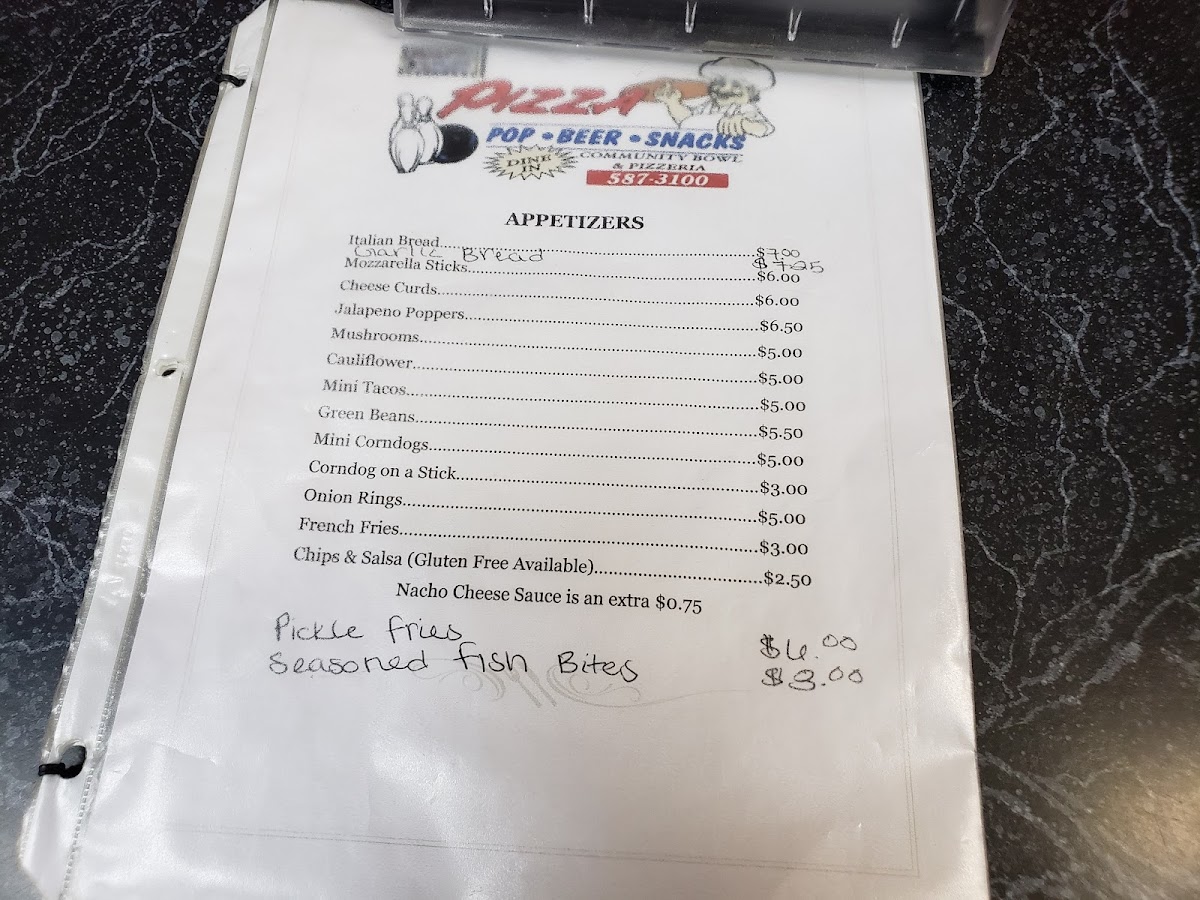 PIZZA
POP • BEER • SNACKS
DINE IN
COMMUNITY BOWL
& PIZZERIA
587-3100
APPETIZERS
Italian Bread........ $7.00
Garlic Bread $7.25
Mozzarella Sticks........ $6.00
Cheese Curds........ $6.00
Jalapeno Poppers........ $6.50
Mushrooms........ $5.00
Cauliflower........ $5.00
Mini Tacos........ $5.00
Green Beans........ $5.50
Mini Corndogs........ $5.00
Corndog on a Stick........ $3.00
Onion Rings........ $5.00
French Fries........ $3.00
Chips & Salsa (Gluten Free Available)........ $2.50
Nacho Cheese Sauce is an extra $0.75
Pickle fries $6.00
Seasoned fish Bites $8.00